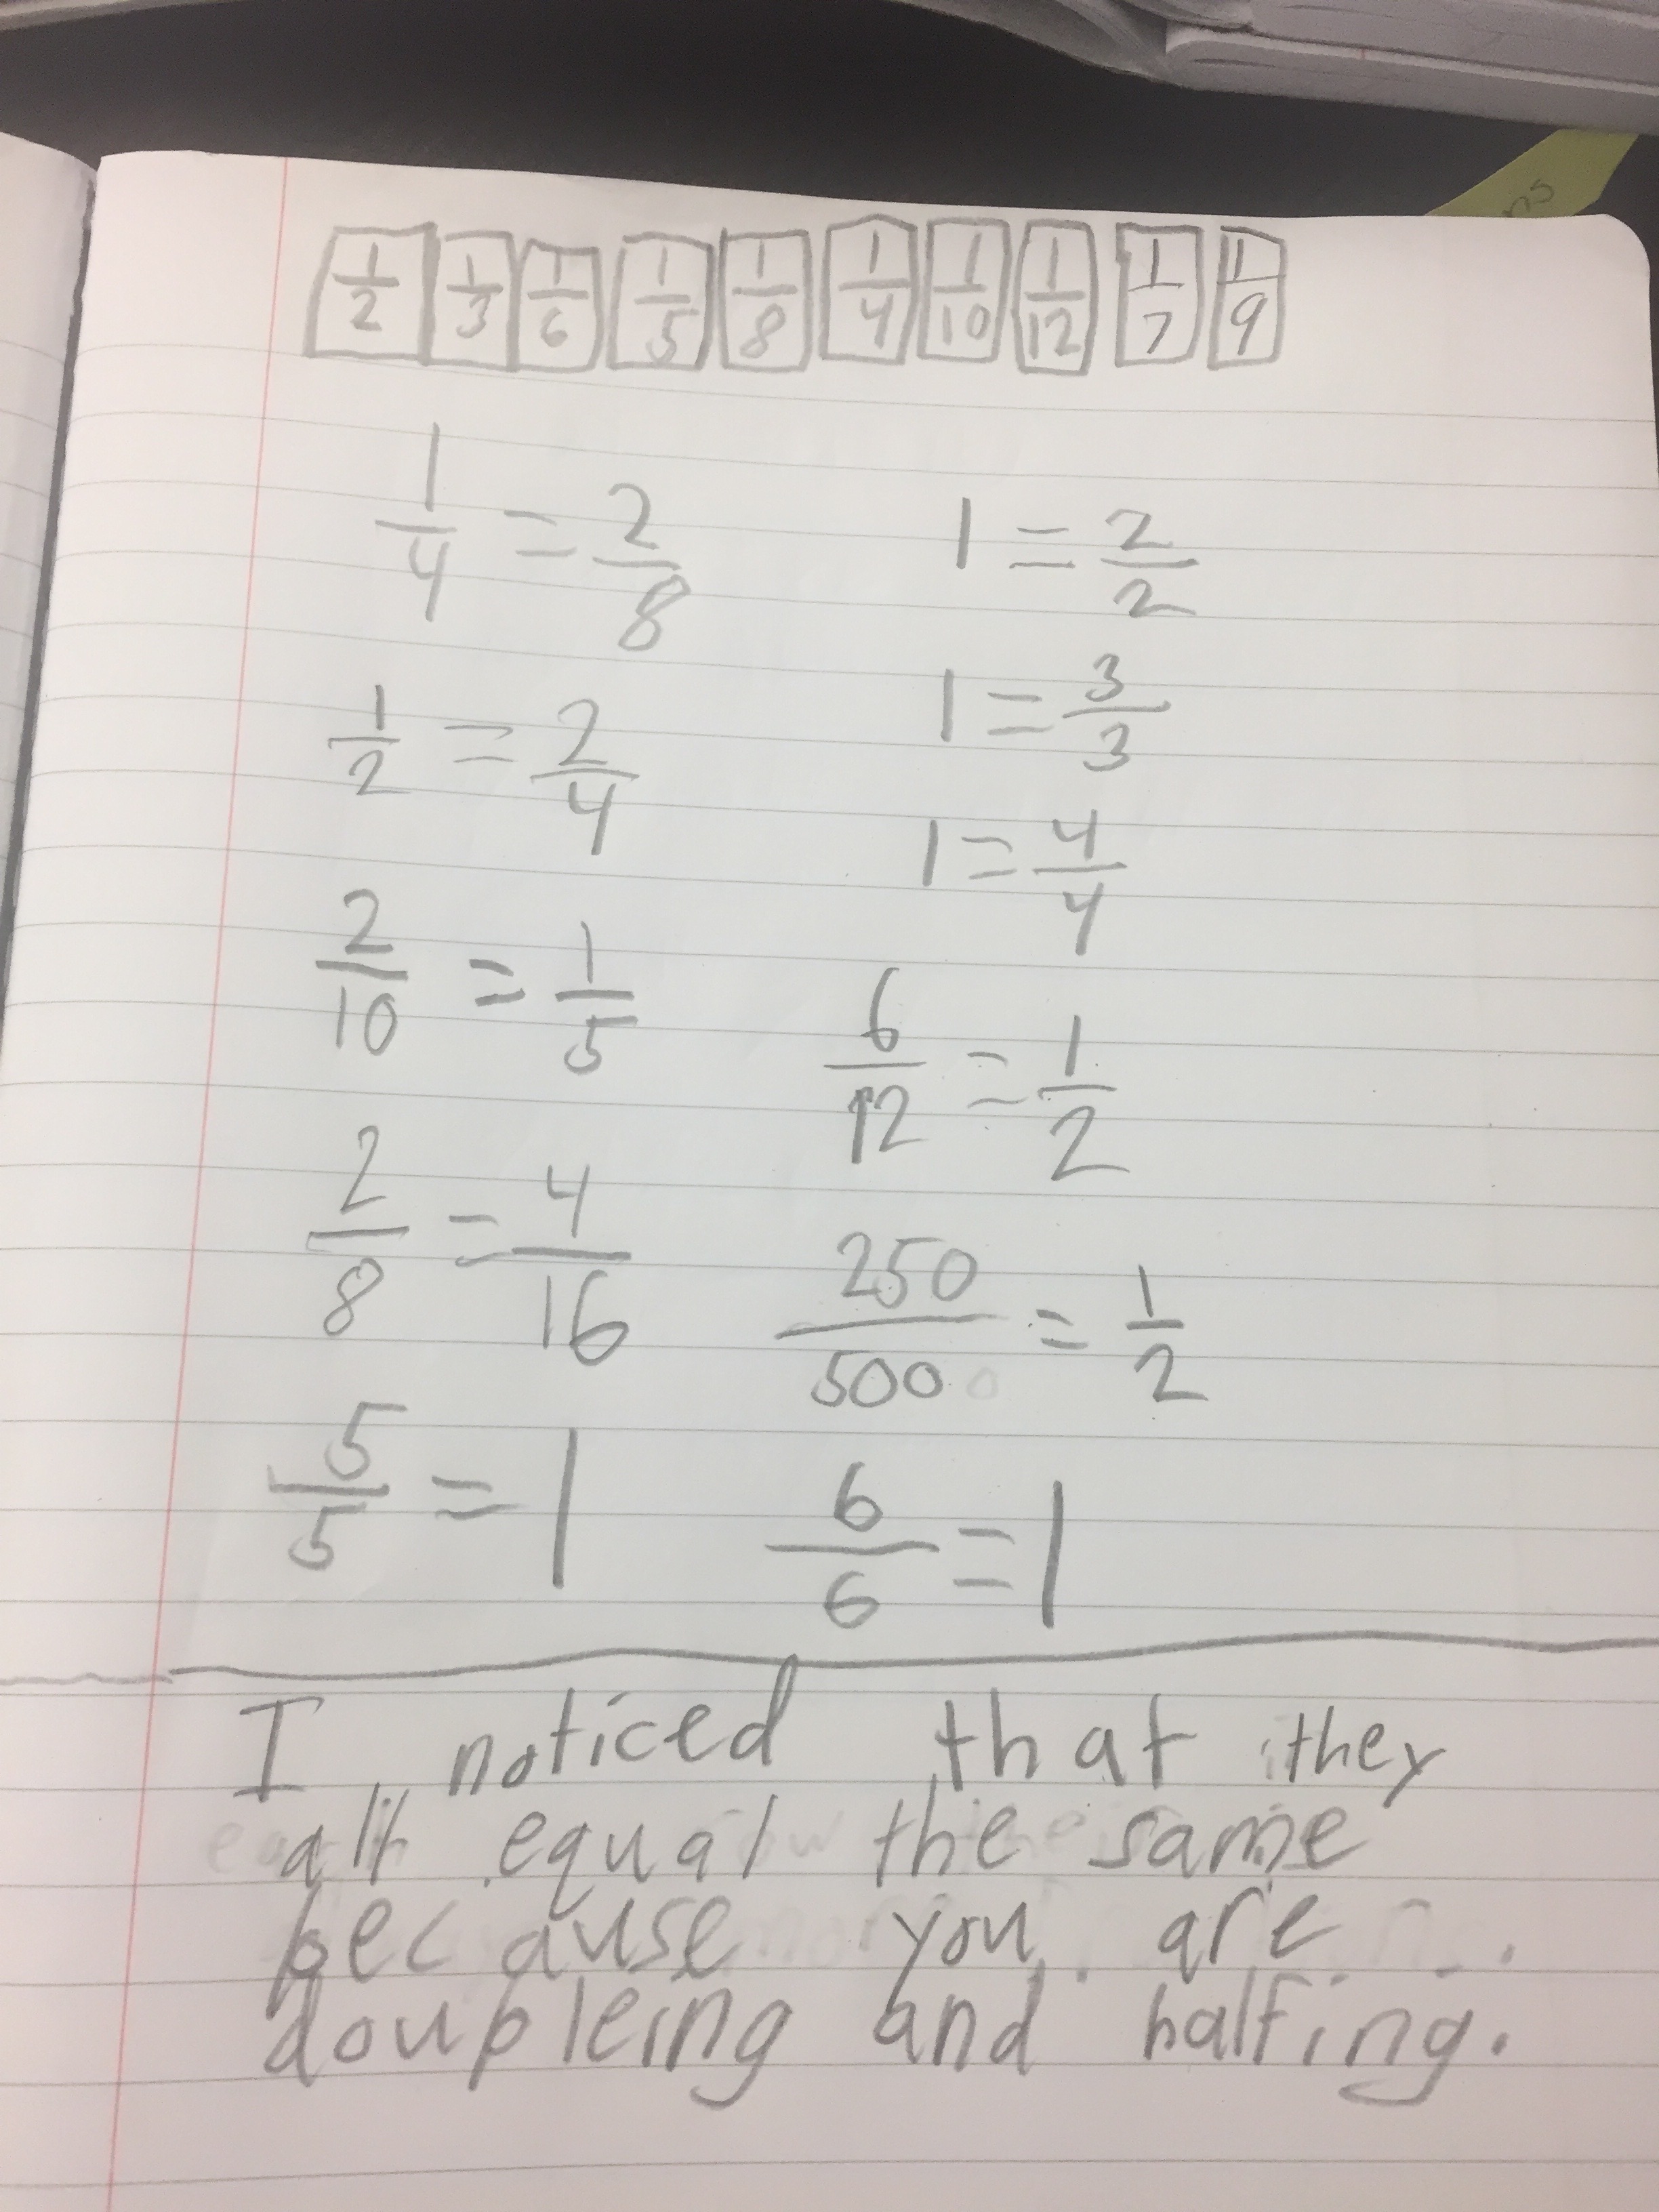 1/2 1/3 1/6 1/5 1/8 1/4 1/10 1/12 1/7 1/9
1/4 = 2/8
1 = 2/2
1/2 = 2/4
1 = 3/3
1 = 4/4
2/10 = 1/5
6/12 = 1/2
2/8 = 4/16
250/500 = 1/2
5/5 = 1
6/6 = 1
I noticed that they
all equal the same
because you are
doupleing and halfing.